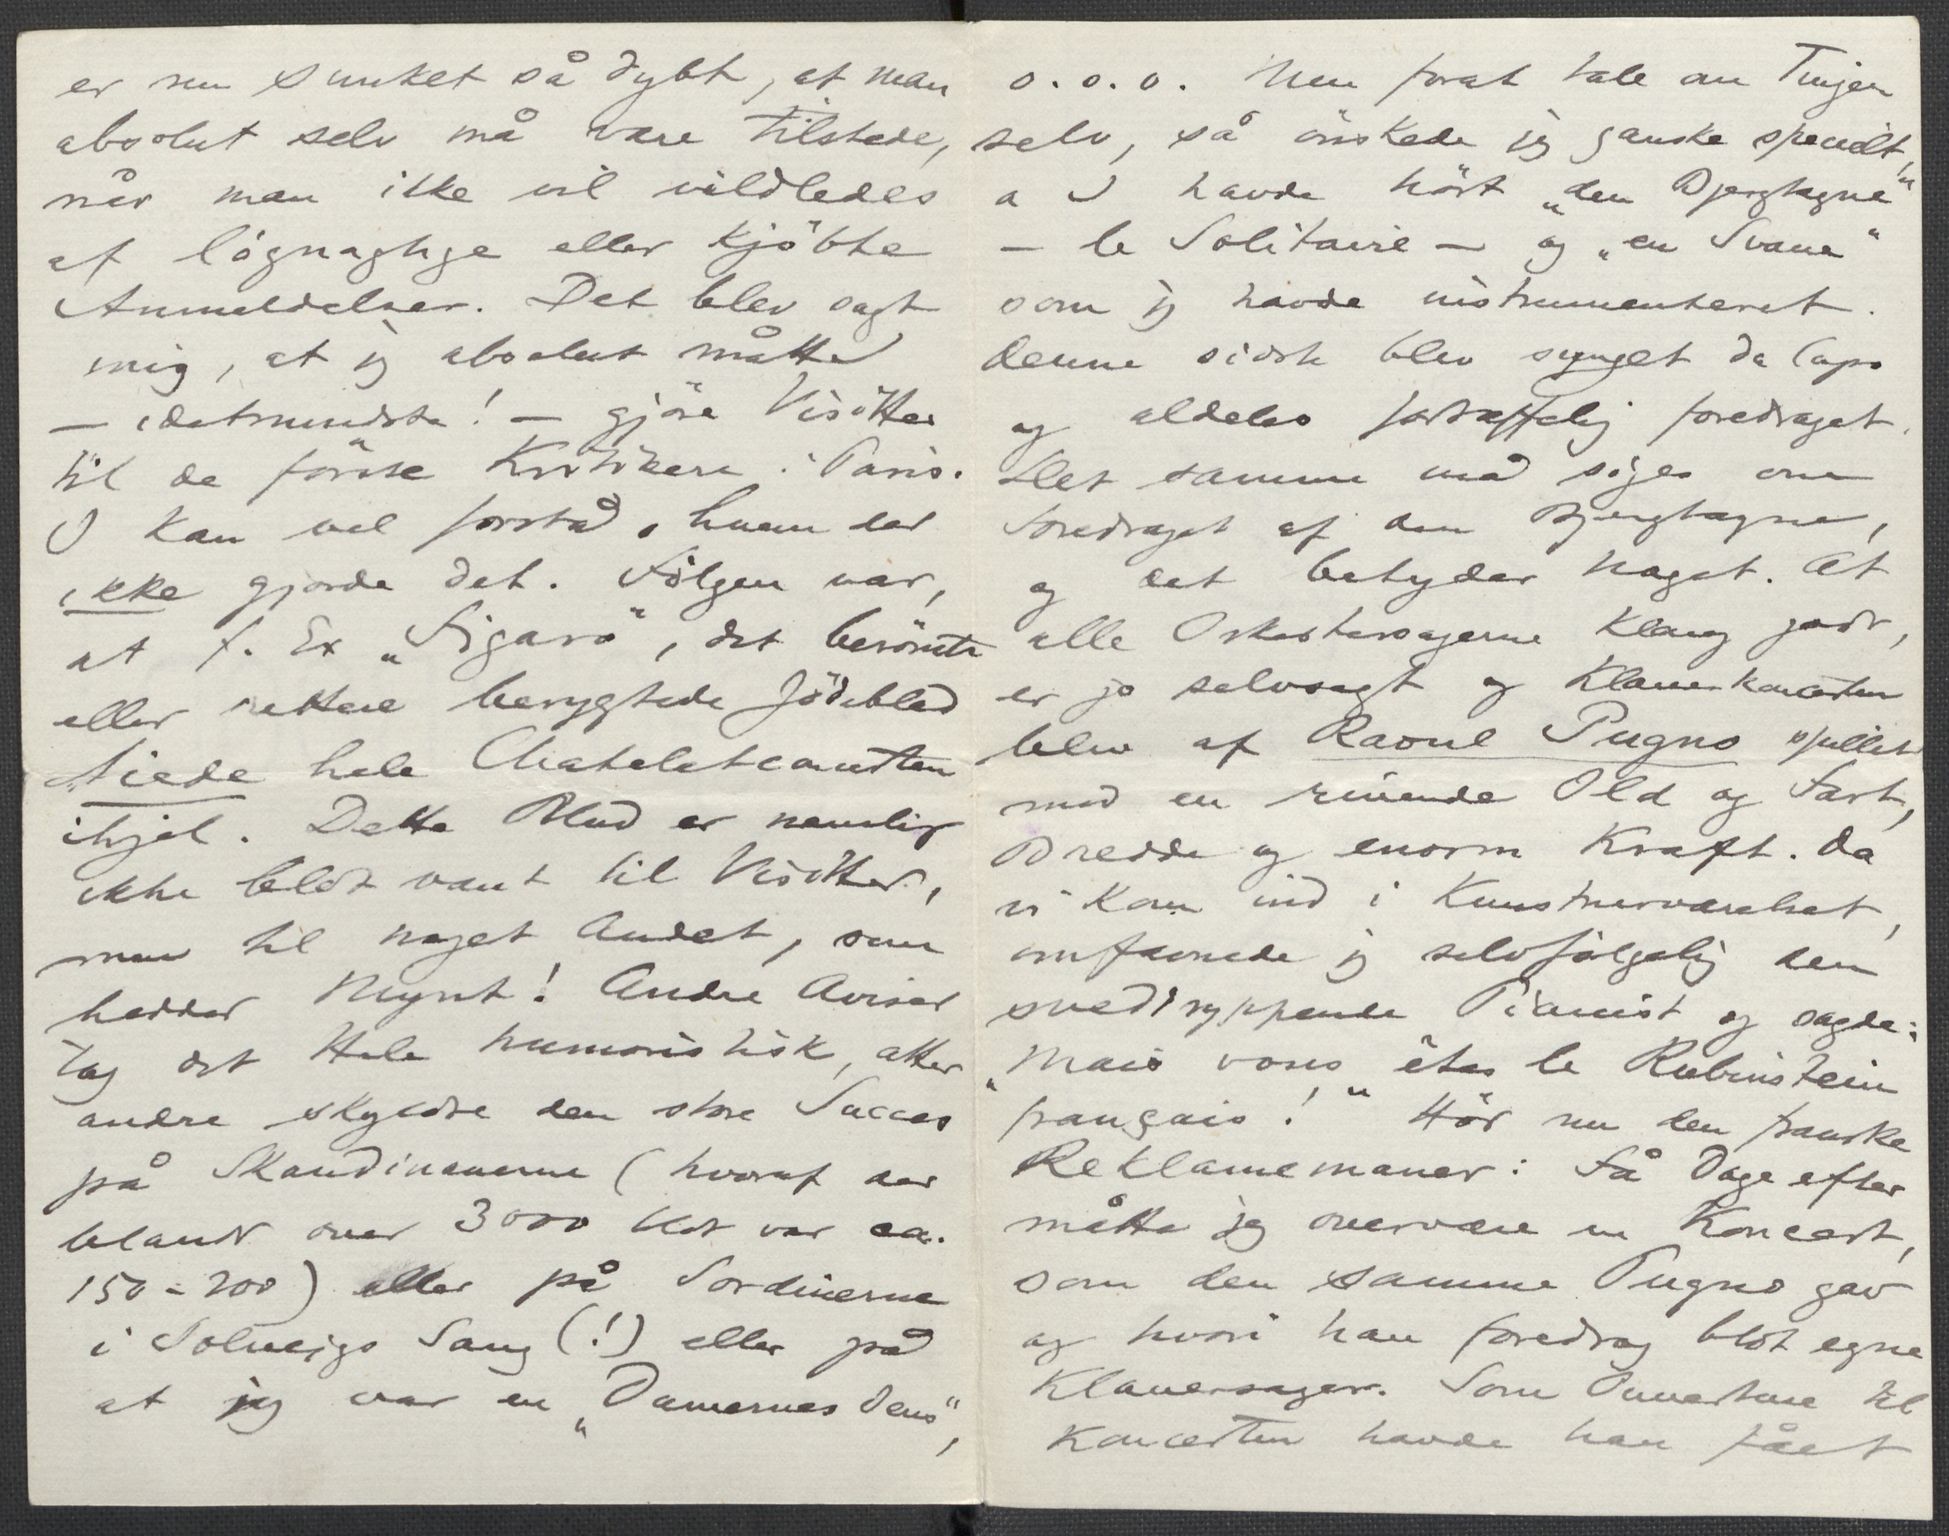 er nu sunket så dybt, at man
absolut selv må være tilstede,
når man ikke vil vildledes
af lögnagtige eller kjöbte
Anmeldelser. Det blev sagt
mig, at jeg absolut måtte
– idetmindste! – gjöre Visitter
til de förste Kritikere i Paris.
I kan vel forstå, hvem der
ikke gjorde det. Fölgen var,
at f. Ex „Figaro", det berömte
eller rettere berygtede Jödeblad
tiede hele Chateletconcerten
ihjel. Dette Blad er nemlig
ikke blot vant til Visitter,
men til noget Andet, som
hedder Mynt! Andre Aviser
tog det Hele humoristisk, atter
andre skyldte den store Succes
på Skandinaverne (hvoraf der
blandt over 3000 blot var ca.
150-200) eller på Sordinerne
i Solveigs Sang (!) eller på
at jeg var en „Damernes dens",
o. s. v. Men forat tale om Tingen
selv, så önskede jeg ganske specielt,
a I havde hört „den Bjergtagne"
– le Solitaire – og „en Svane"
som jeg havde instrumenteret.
Denne sidste blev synget da capo
og aldeles fortræffelig foredraget.
Det samme må siges om
Foredraget af den Bjergtagne,
og det betyder noget. At
alle Orkestersagerne klang godt,
er jo selvsagt og Klaverkoncerten
blev af Raoul Pugno spillet
med en rivende Ild og Fart,
Bredde og enorm Kraft. Da
vi kom ind i Kunstnerværelset,
omfavnede jeg selvfölgelig den
sveddryppende Pianist og sagde:
„Mais vous êtes le Rubinstein
français!" Hör nu den franske
Reklamemaner: Få Dage efter
måtte jeg overvære en Koncert,
som den samme Pugno gav
og hvori han foredrog blot egne
Klaversager. Som Ouverture til
Koncerten havde han fået